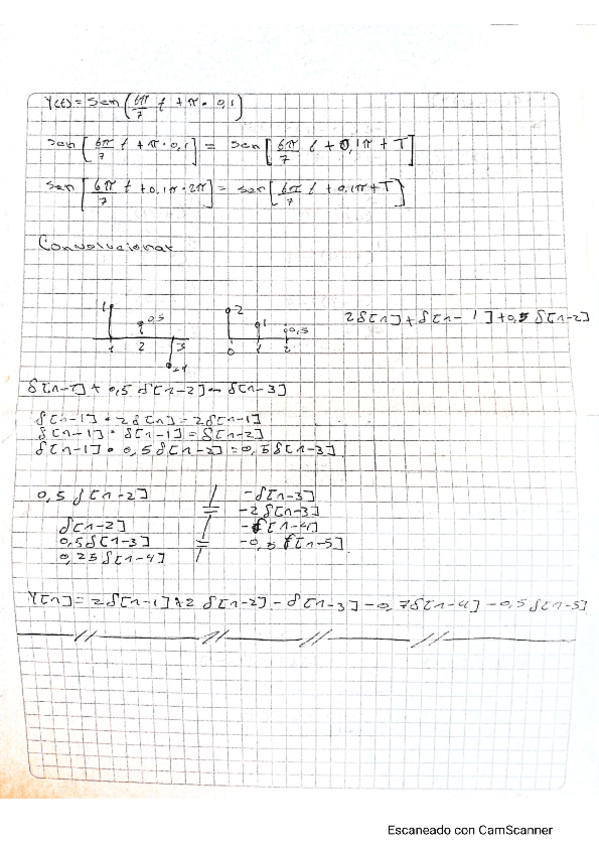 Y(t) = Sen(6π/7 t + π · 0,1)
sen[6π/7 t + π · 0,1] = sen[6π/7 t + 0,1π + T]
sen[6π/7 t + 0,1π · 2π] = sen[6π/7 t + 0,1π + T]
Convolucionar
1 0,5 -1 1 2 3
2 1 0,5 0 1 2
2δ[n] + δ[n-1] + 0,5 δ[n-2]
δ[n-1] + 0,5 δ[n-2] - δ[n-3]
δ[n-1] · 2δ[n] = 2δ[n-1]
δ[n-1] · δ[n-1] = δ[n-2]
δ[n-1] · 0,5δ[n-2] = 0,5δ[n-3]
0,5 δ[n-2] -δ[n-3]
-2δ[n-3]
δ[n-2] -δ[n-4]
0,5δ[n-3] -0,5 δ[n-5]
0,25 δ[n-4]
Y[n] = 2δ[n-1] + 2 δ[n-2] - δ[n-3] - 0,7δ[n-4] - 0,5 δ[n-5]
Escaneado con CamScanner